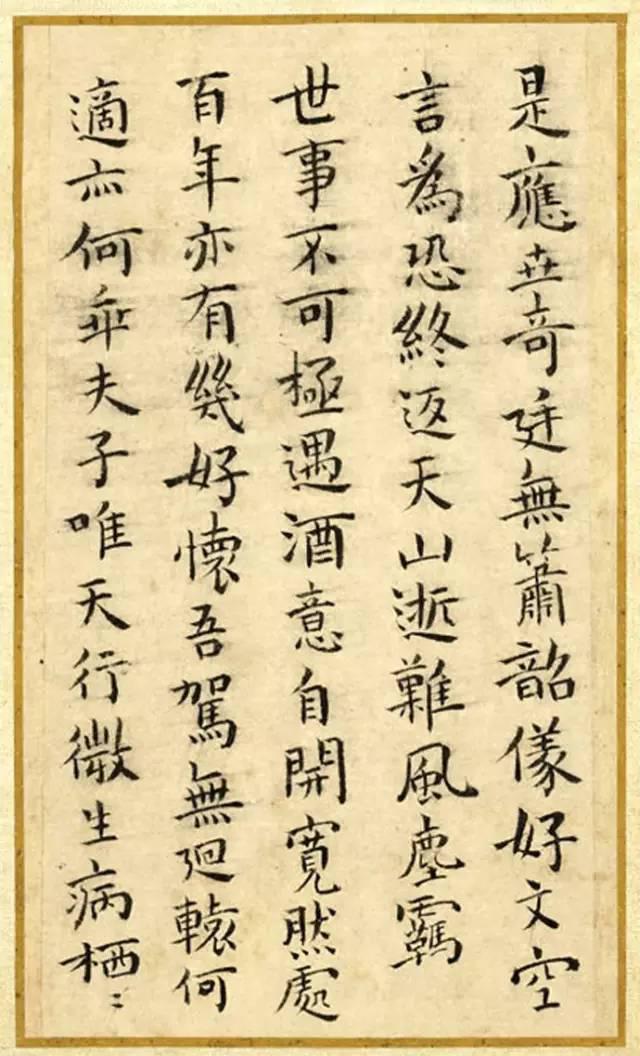 是應世奇廷無簫韶儀好文空
言爲恐終返天山逝難風塵羈
世事不可極遇酒意自開寬然處
百年亦有幾好懷吾駕無迴轅何
適亦何乖夫子唯天行微生病栖〻